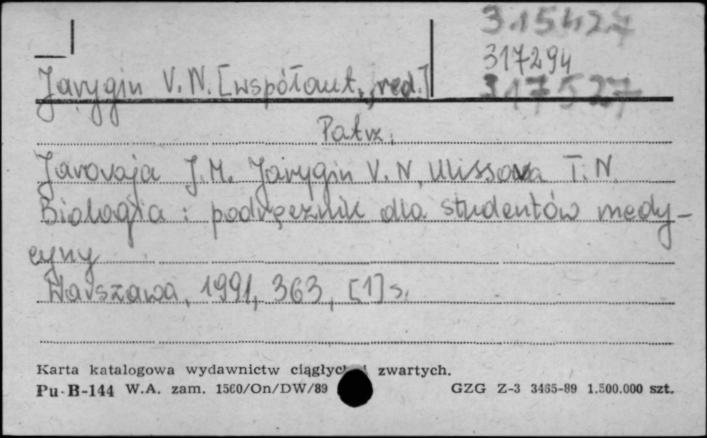 315427
317294
317527
Jarygin V.N. [współaut., red.]
Patrz.
Jarovaja J.M. Jarygin V.N, Ulissova T.N.
Biologia : podręcznik dla studentów medy-
cyny
Warszawa, 1991, 363, [1] s.
Karta katalogowa wydawnictw ciągłych i zwartych.
Pu-B-144 W.A. zam. 1560/On/DW/89 GZG Z-3 3465-89 1.500.000 szt.